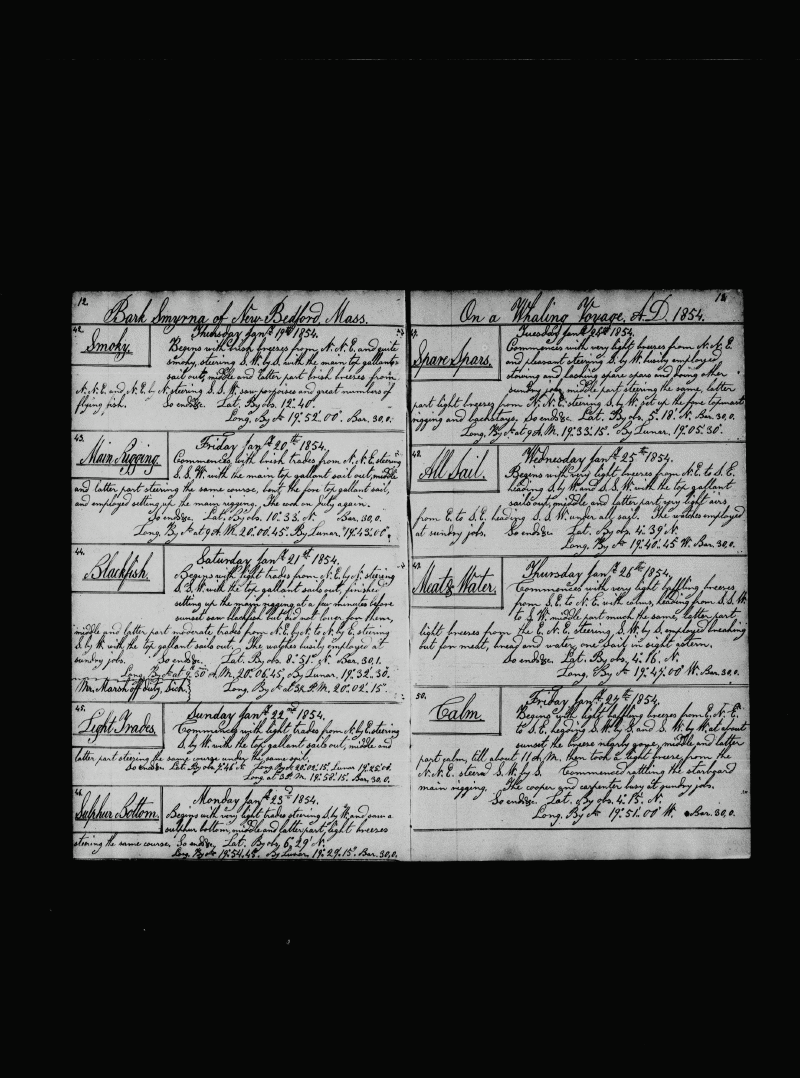 12.
Bark Smyrna of New Bedford, Mass.
42.
Smoky.
Thursday Jany. 19th 1854.
Begins with brisk breezes from N. N. E. and quite
smoky, steering S. W. by S. with the main top gallant
sail out, middle and latter part brisk breezes from
N. N. E. and N. E. by N. steering S. S. W. saw porpoises and great numbers of
flying fish. So ends &c. Lat. By obs. 12°40'
Long. By A 19°.52'.00". Bar. 30,0.
43.
Main Rigging.
Friday Jany. 20th 1854.
Commences with brisk trades from N. N. E. steering
S. S. W. with the main top gallant sail out, middle
and latter part steering the same course, bent the fore top gallant sail,
and employed setting up the main rigging. The cook on duty again.
So ends &c. Lat. By obs. 10°.33'. N. Bar. 30,0.
Long. By A at 9 A. M. 20°.00'.45". By Lunar. 19°.43'.00".
44.
Blackfish.
Saturday Jany. 21st 1854.
Begins with light trades from N. E. by N. steering
S. S. W. with the top gallant sails out, finished
setting up the main rigging at a few minutes before
sunset saw blackfish but did not lower for them,
middle and latter part moderate trades from N. E. by N. to N. by E. steering
S. by W. with the top gallant sails out. The watches busily employed at
sundry jobs. So ends &c. Lat. By obs. 8°.51'. N. Bar. 30,1.
Long. By A at 9.30 A. M. 20°.06'.45". By Lunar. 19°.32'.30".
Mr. Marsh off duty, sick. Long. By A at 3 P. M. 20°.02'.15".
45.
Light Trades.
Sunday Jany. 22nd 1854.
Commences with light trades from N. by E. steering
S. by W. with the top gallant sails out, middle and
latter part steering the same course under the same sail.
So ends &c Lat. By obs. 7°.46'. N. Long. By A 20°.02'.15". Lunar 19°.25'.06".
Long at 3 P. M. 19°.58'.15". Bar. 30,0.
46.
Sulphur Bottom.
Monday Jany. 23d 1854.
Begins with very light trades steering S. by W. and saw a
sulphur bottom, middle and latter part, light breezes
steering the same course. So ends &c. Lat. By obs. 6°.29'. N.
Long. By A 19°.54'.45". By Lunar. 19°.29'.15". Bar. 30,0.
On a Whaling Voyage. A. D. 1854.
47.
Spare Spars.
Tuesday Jany. 24th 1854.
Commences with very light breezes from N. N. E.
and pleasant steering S. by W. busily employed
stowing and lashing spare spars and doing other
sundry jobs, middle part steering the same, latter
part light breezes from N. N. E. steering S. by W. got up the fore topmast
rigging and backstays. So ends &c. Lat. By obs. 5°.18'. N. Bar. 30,0.
Long. By A at 9 A. M. 19°.33'.15". By Lunar. 19°.05'.30".
48.
All Sail.
Wednesday Jany. 25th 1854.
Begins with very light breezes from N. E. to S. E.
heading S. by W. and S. S. W. with the top gallant
sails out, middle and latter part very light airs
from E. to S. E. heading S. S. W. under all sail. The watches employed
at sundry jobs. So ends &c. Lat. By obs. 4°.39'. N.
Long. By A 19°.40'.45". W. Bar. 30,0.
49.
Meat & Water.
Thursday Jany. 26th 1854.
Commences with very light baffling breezes
from S. E. to N. E. with calms, heading from S. S. W.
to S. W. middle part much the same, latter part
light breezes from the E. N. E. steering S. W. by S. employed breaking
out for meat, bread and water, one sail in sight astern.
So ends &c. Lat. By obs. 4°.16'. N.
Long. By A 19°.49'.00". W. Bar. 30,0.
50.
Calm.
Friday Jany. 27th 1854.
Begins with light baffling breezes from E. N. E.
to S. E. heading S. W. by S. and S. W. by W. at about
sunset the breeze nearly gone, middle and latter
part calm, till about 11 A. M. then took a light breeze from the
N. N. E. steered S. W. by S. Commenced rattling the starboard
main rigging. The cooper and carpenter busy at sundry jobs.
So ends &c. Lat. By obs. 4°.15'. N.
Long. By A 19°.51'.00". W. Bar. 30,0.